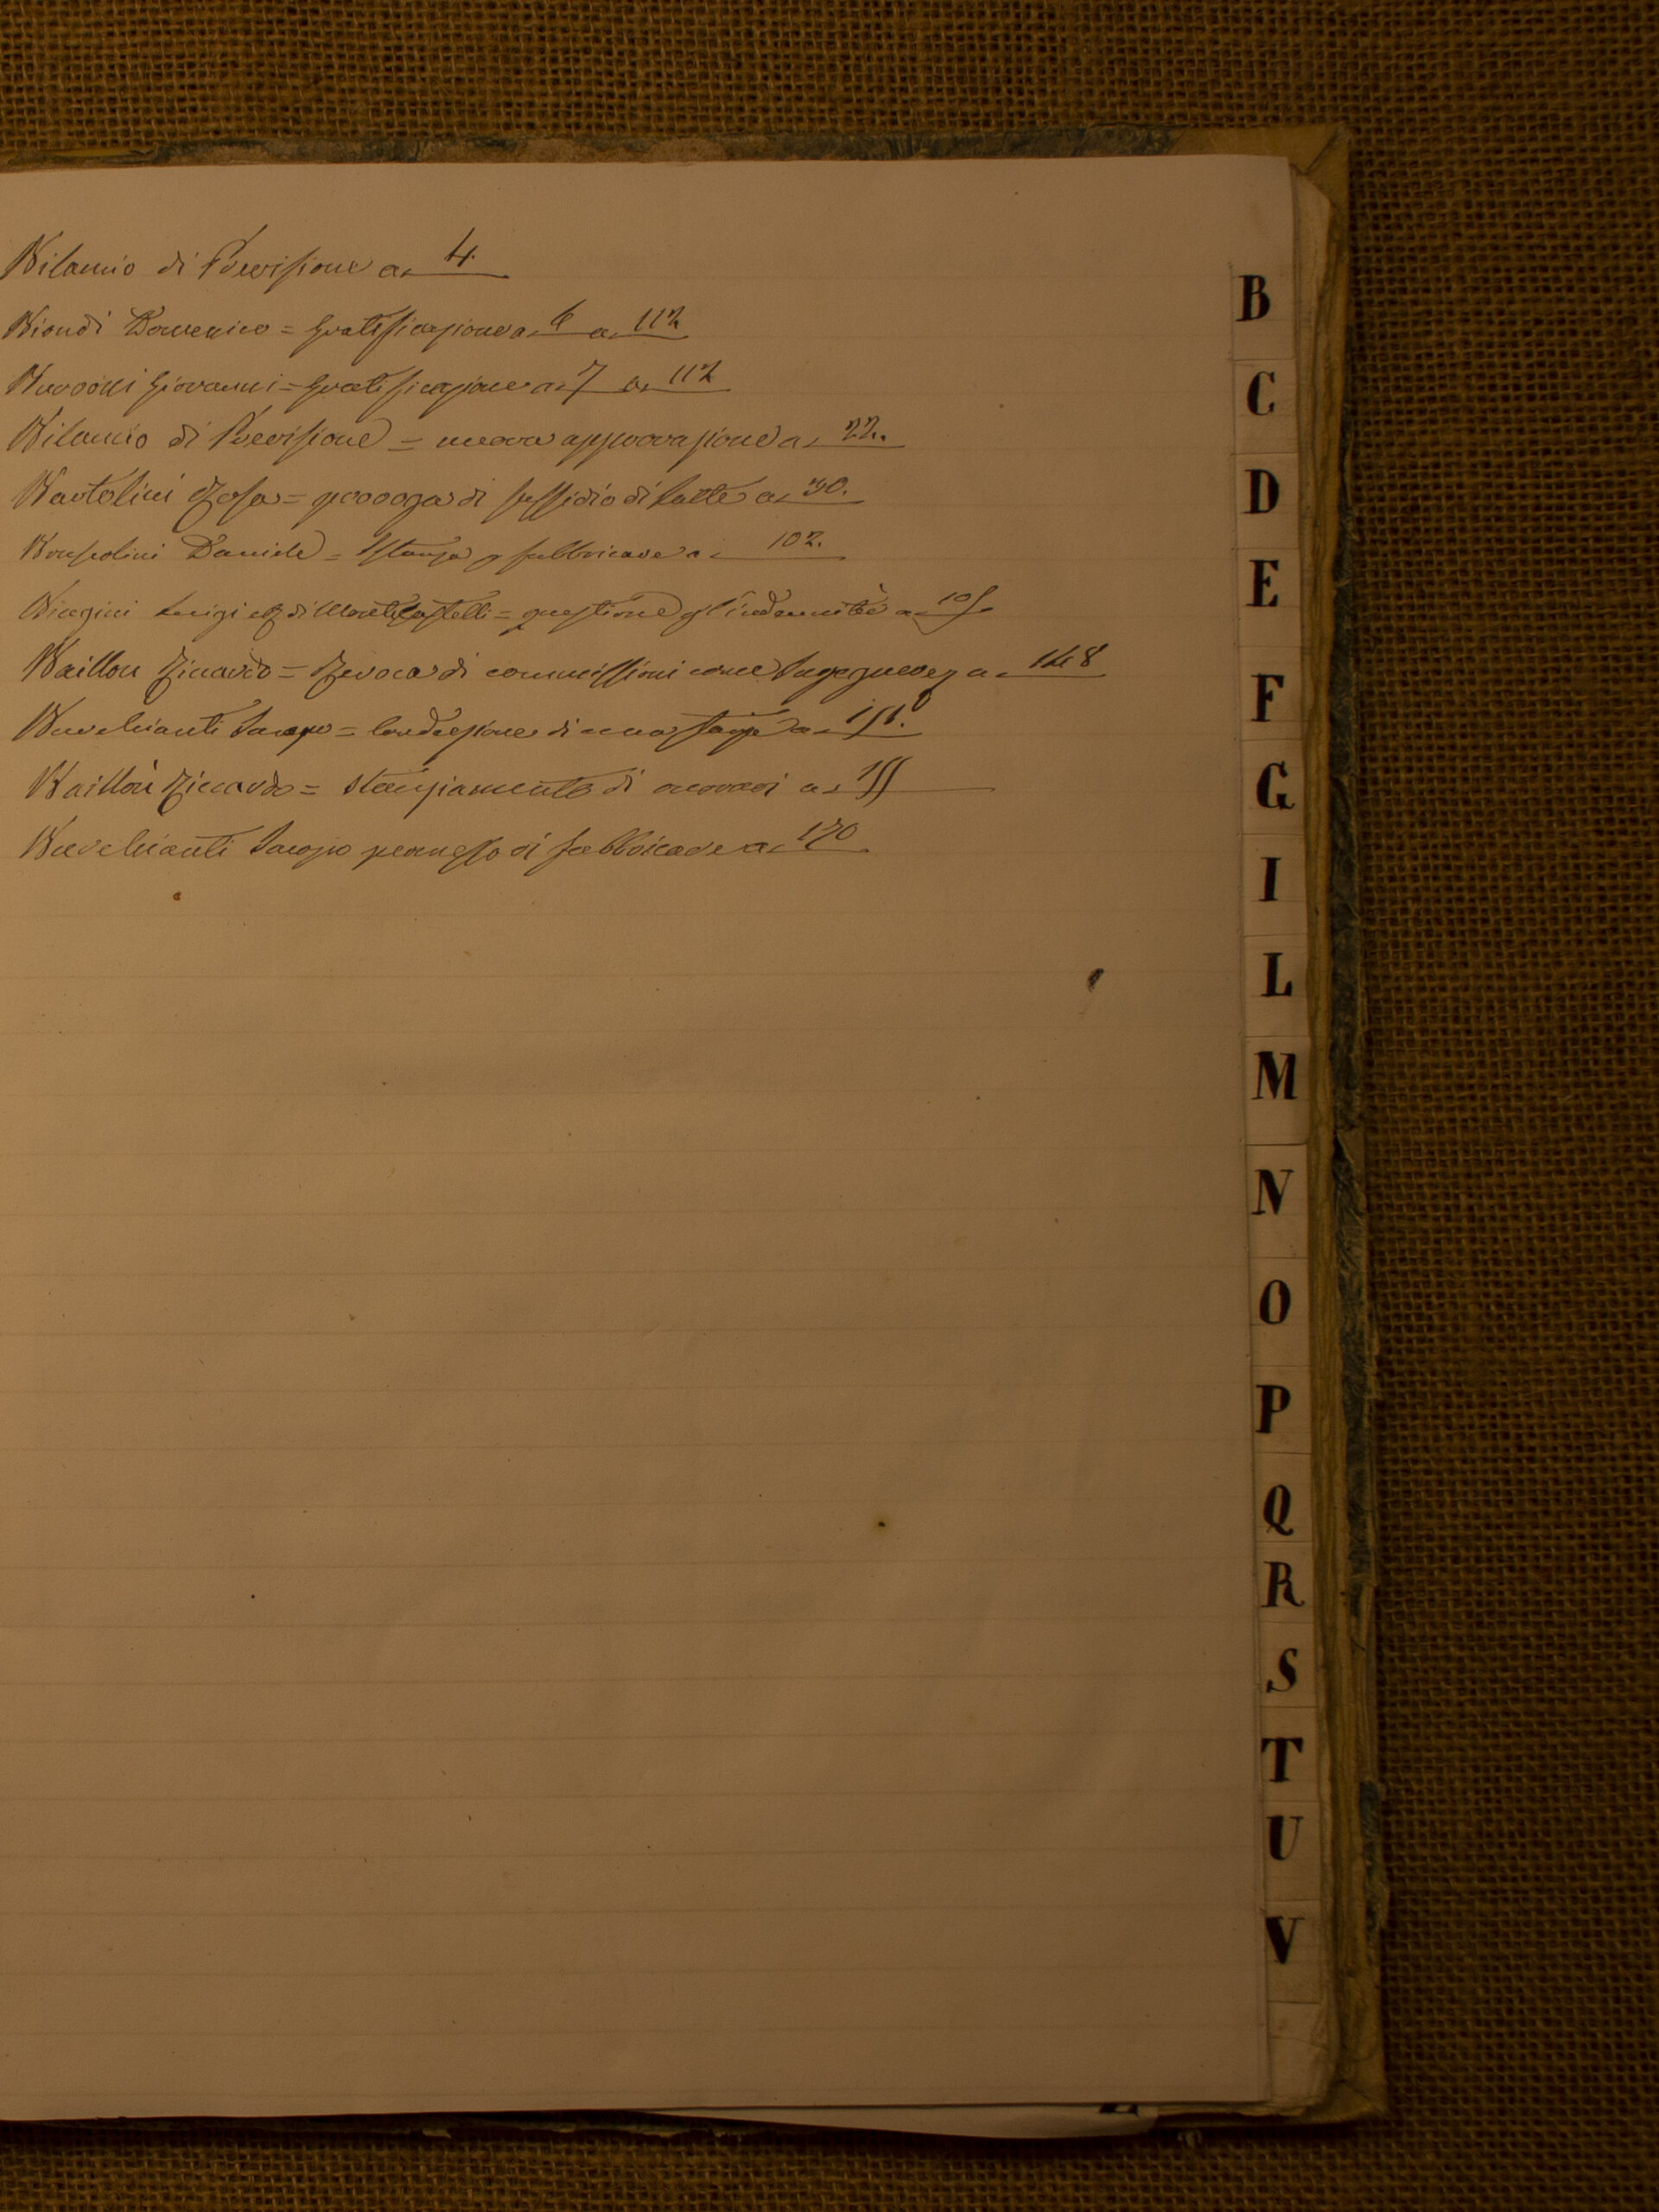 Bilancio di Previsione a 4.
Biondi Domenico = Gratificazione a 6 a 112
Burroni Giovanni = Gratificazione a 7 a 112
Bilancio di Previsione = nuova approvazione a 22.
Bartolini Rosa = proroga di sussidio di latte a 30.
Daniele = Istanza p fabbricare a 102.
Biagini Luigi e di Monte Castelli = questione p l'indennità a 105
Baillou Riccardo = Revoca di commissioni come Ingegnere a 148
Bucchianti Iacopo = di una a 151.
Baillou Riccardo = Stanziamento di onorari a 155
Bucchianti Iacopo permesso di fabbricare a 170
B
C
D
E
F
G
I
L
M
N
O
P
Q
R
S
T
U
V